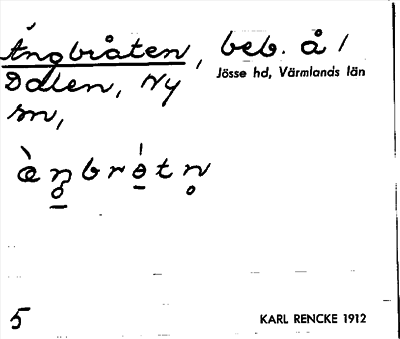 Ängbråten, beb. å /
Jösse hd, Värmlands län
Dalen, Ny
sn,
5
KARL RENCKE 1912